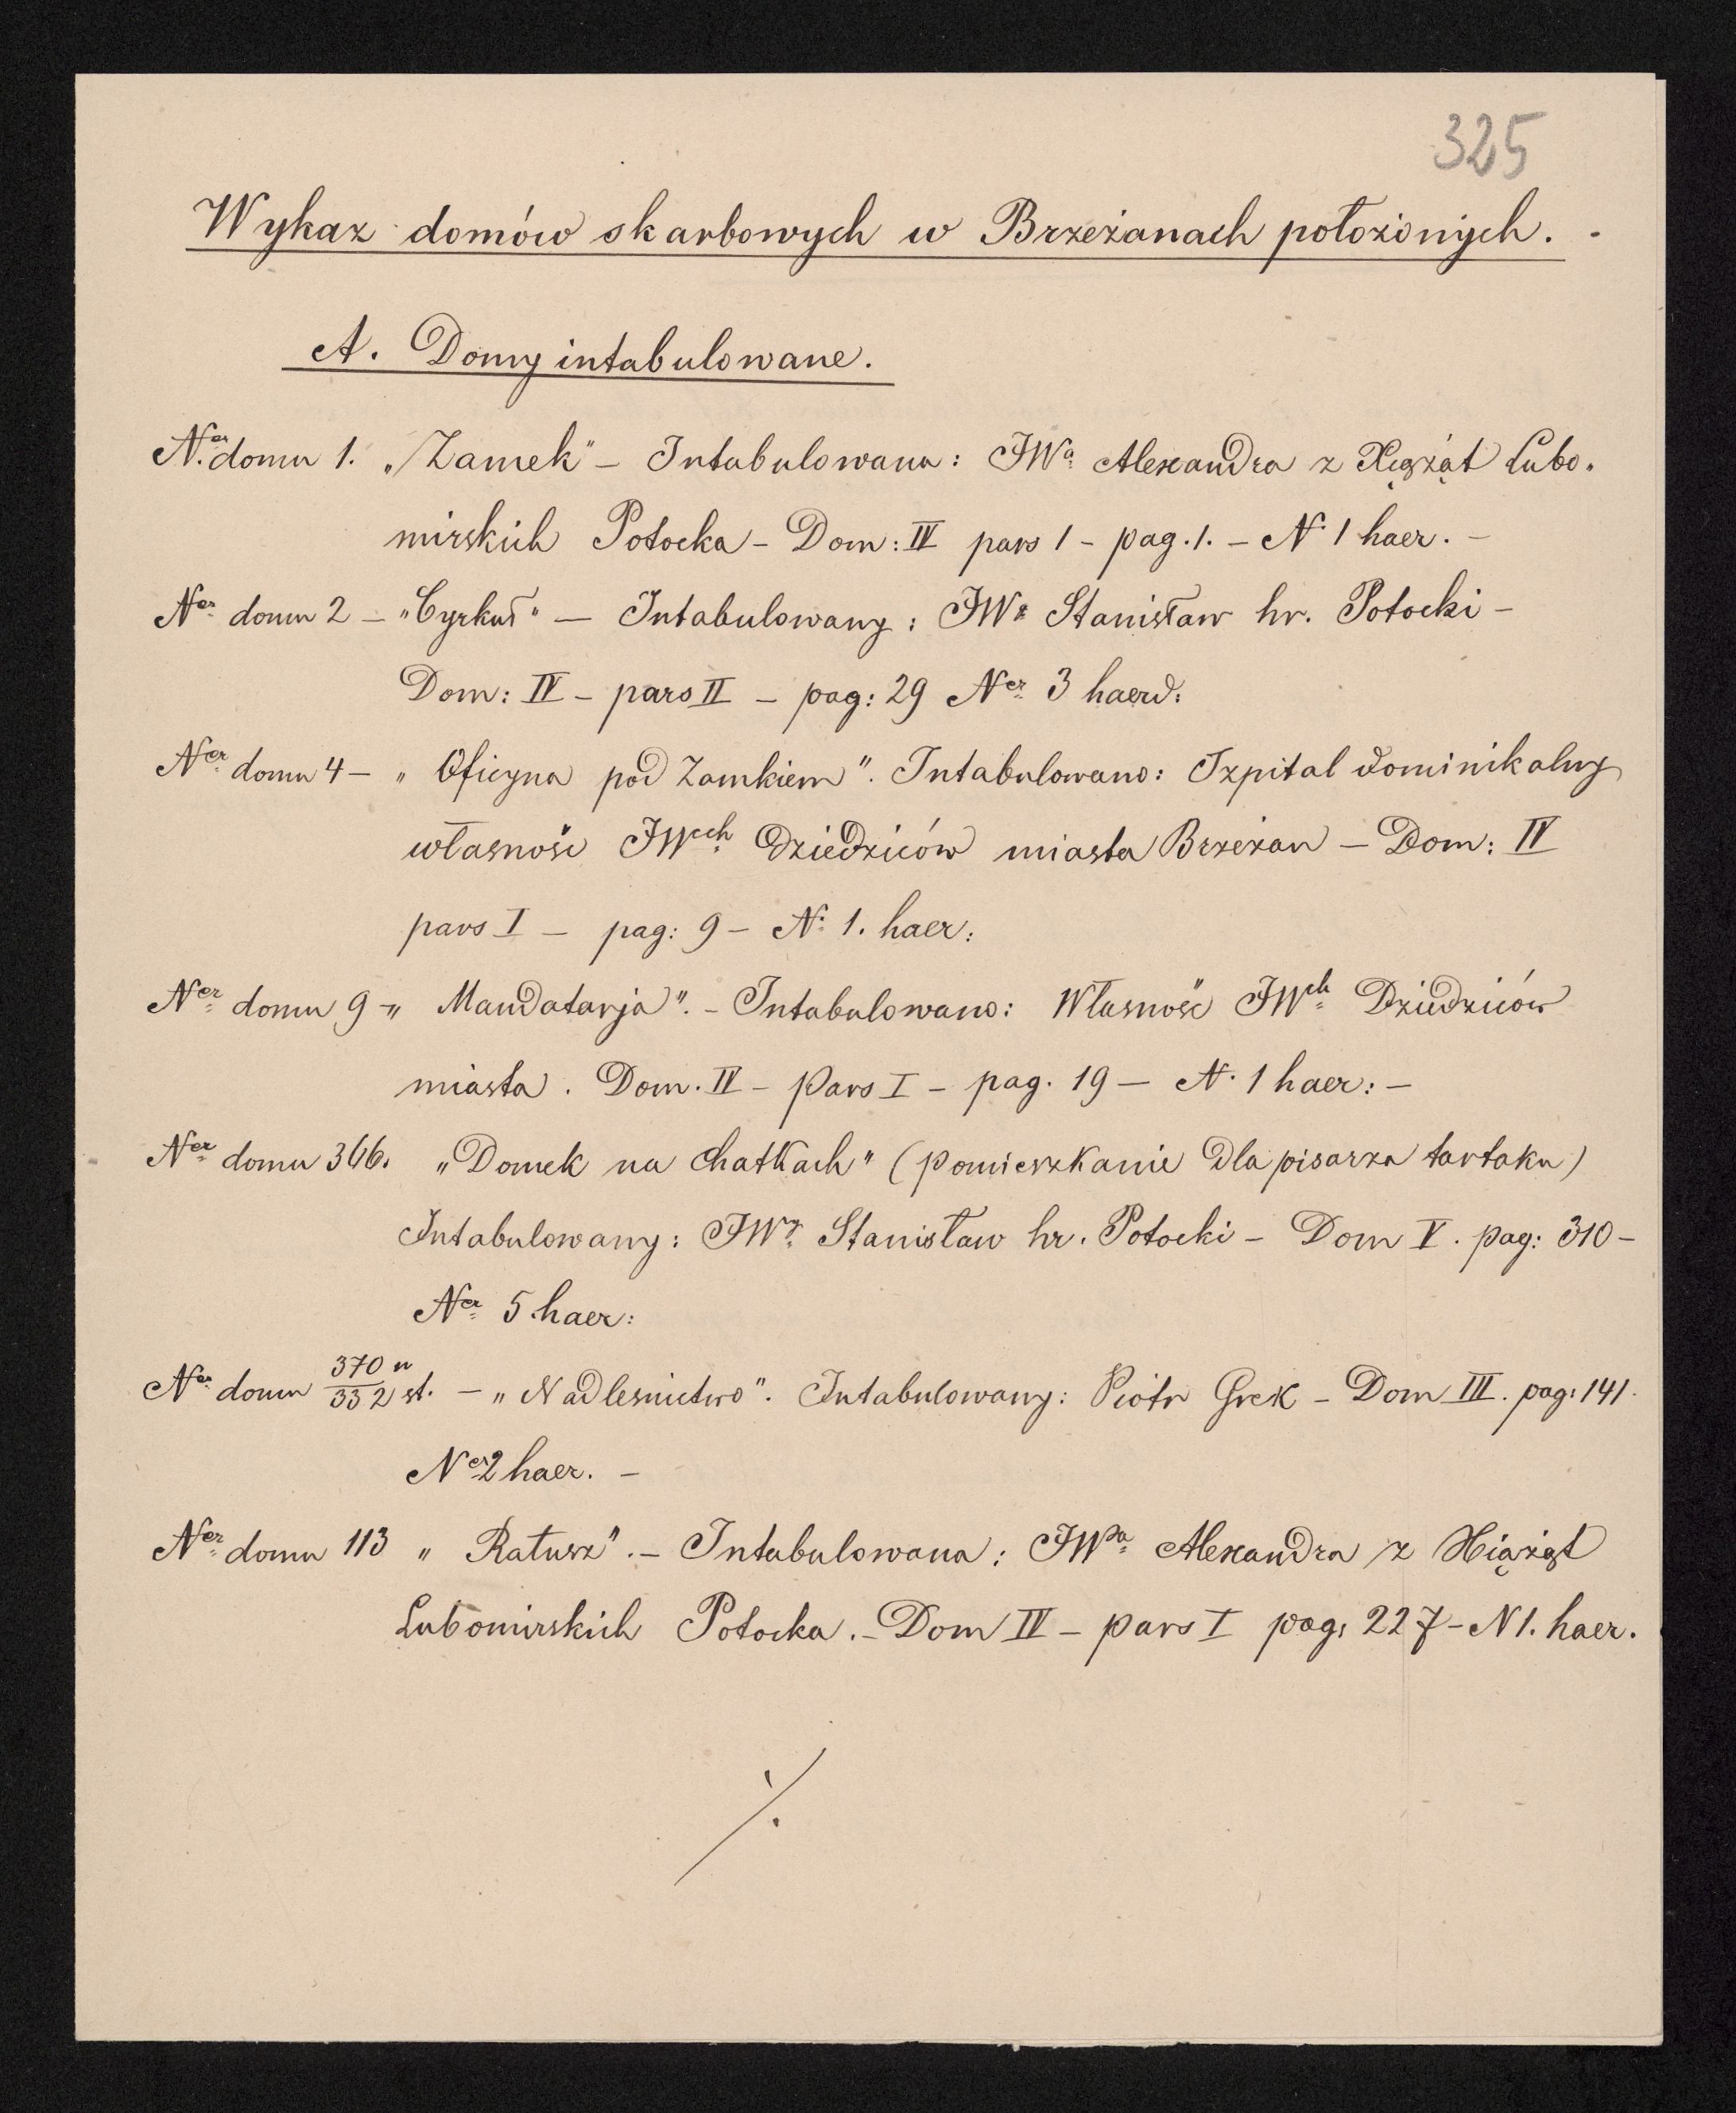 325
Wykaz domów skarbowych w Brzeżanach położonych. -
A. Domy intabulowane.
Ner domu 1. „Zamek" – Intabulowana: JWa Alexandra z Xiążąt Lubo-
mirskich Potocka – Dom: IV pars 1 – pag. 1. – N. 1 haer. –
Ner domu 2 – „Cyrkuł" – Intabulowany: JWr Stanisław hr. Potocki –
Dom: IV – pars II – pag: 29 Ner 3 haerd:
Ner domu 4 – „Oficyna pod Zamkiem". Intabulowano: Szpital dominikalny
własność JWch Dziedziców miasta Brzeżan – Dom: IV
pars I – pag: 9 – N: 1. haer:
Ner domu 9 – „Mandatarja". – Intabulowano: Własność JWch Dziedziców
miasta. Dom. IV – Pars I – pag. 19 – N. 1 haer: –
Ner domu 366. „Domek na Chatkach" (pomieszkanie dla pisarza tartaku)
Intabulowany: JWr Stanisław hr. Potocki – Dom V. pag: 310 –
Ner 5 haer:
Ner domu 370 n/332 st. – „Nadleśnictwo". Intabulowany: Piotr Grek – Dom III. pag: 141.
Ner 2 haer. –
Ner domu 113 „Ratusz". – Intabulowana: JWPa Alexandra z Xiążąt
Lubomirskich Potocka. – Dom IV – pars I pag: 227 – N 1. haer.
./.